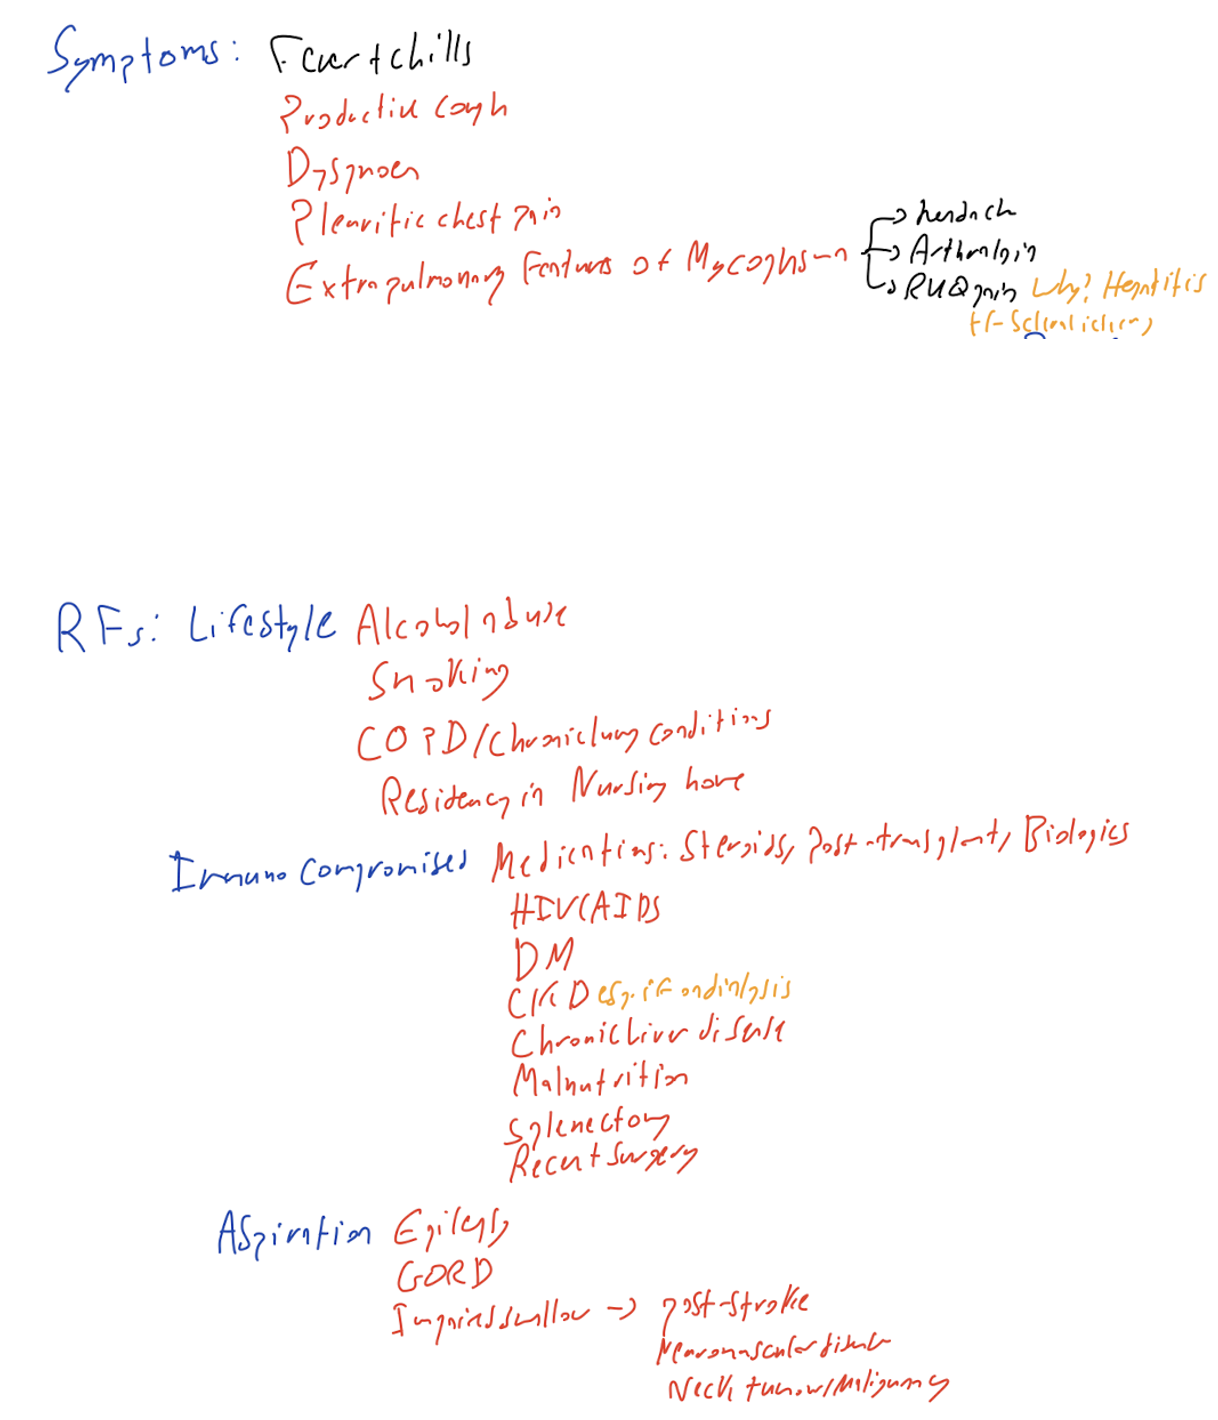 Symptoms: Fever + chills
Productive cough
Dyspnoea
Pleuritic chest pain
Extrapulmonary Features of Mycoplasma → headach
→ Arthralgia
→ RUQ pain Why? Hepatitis
+/- Scleral icterus
RFs: Lifestyle Alcohol abuse
Smoking
COPD/Chronic lung conditions
Residency in Nursing home
Immuno compromised Medications: Steroids, Post-transplant, Biologics
HIV/AIDS
DM
CKD esp. if on dialysis
Chronic Liver disease
Malnutrition
Splenectomy
Recent surgery
Aspiration Epilepsy
GORD
Impaired swallow → post-stroke
Neuromuscular disease
Neck tumour/Malignancy